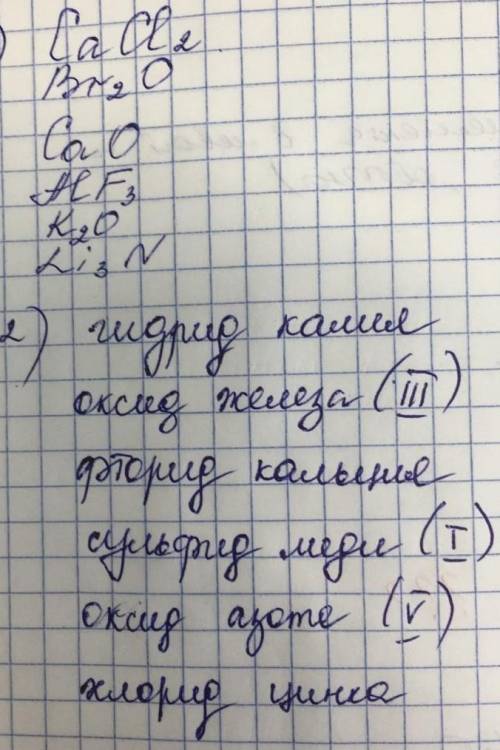 ) CaCl2
Br2O
CaO
AlF3
K2O
Li3N
2) гидрид калия
оксид железа (III)
фторид кальция
сульфид меди (I)
оксид азота (V)
хлорид цинка